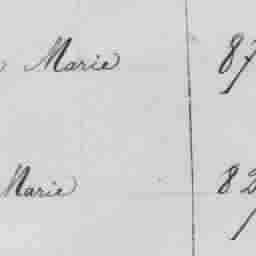 Marie 87
Marie 82